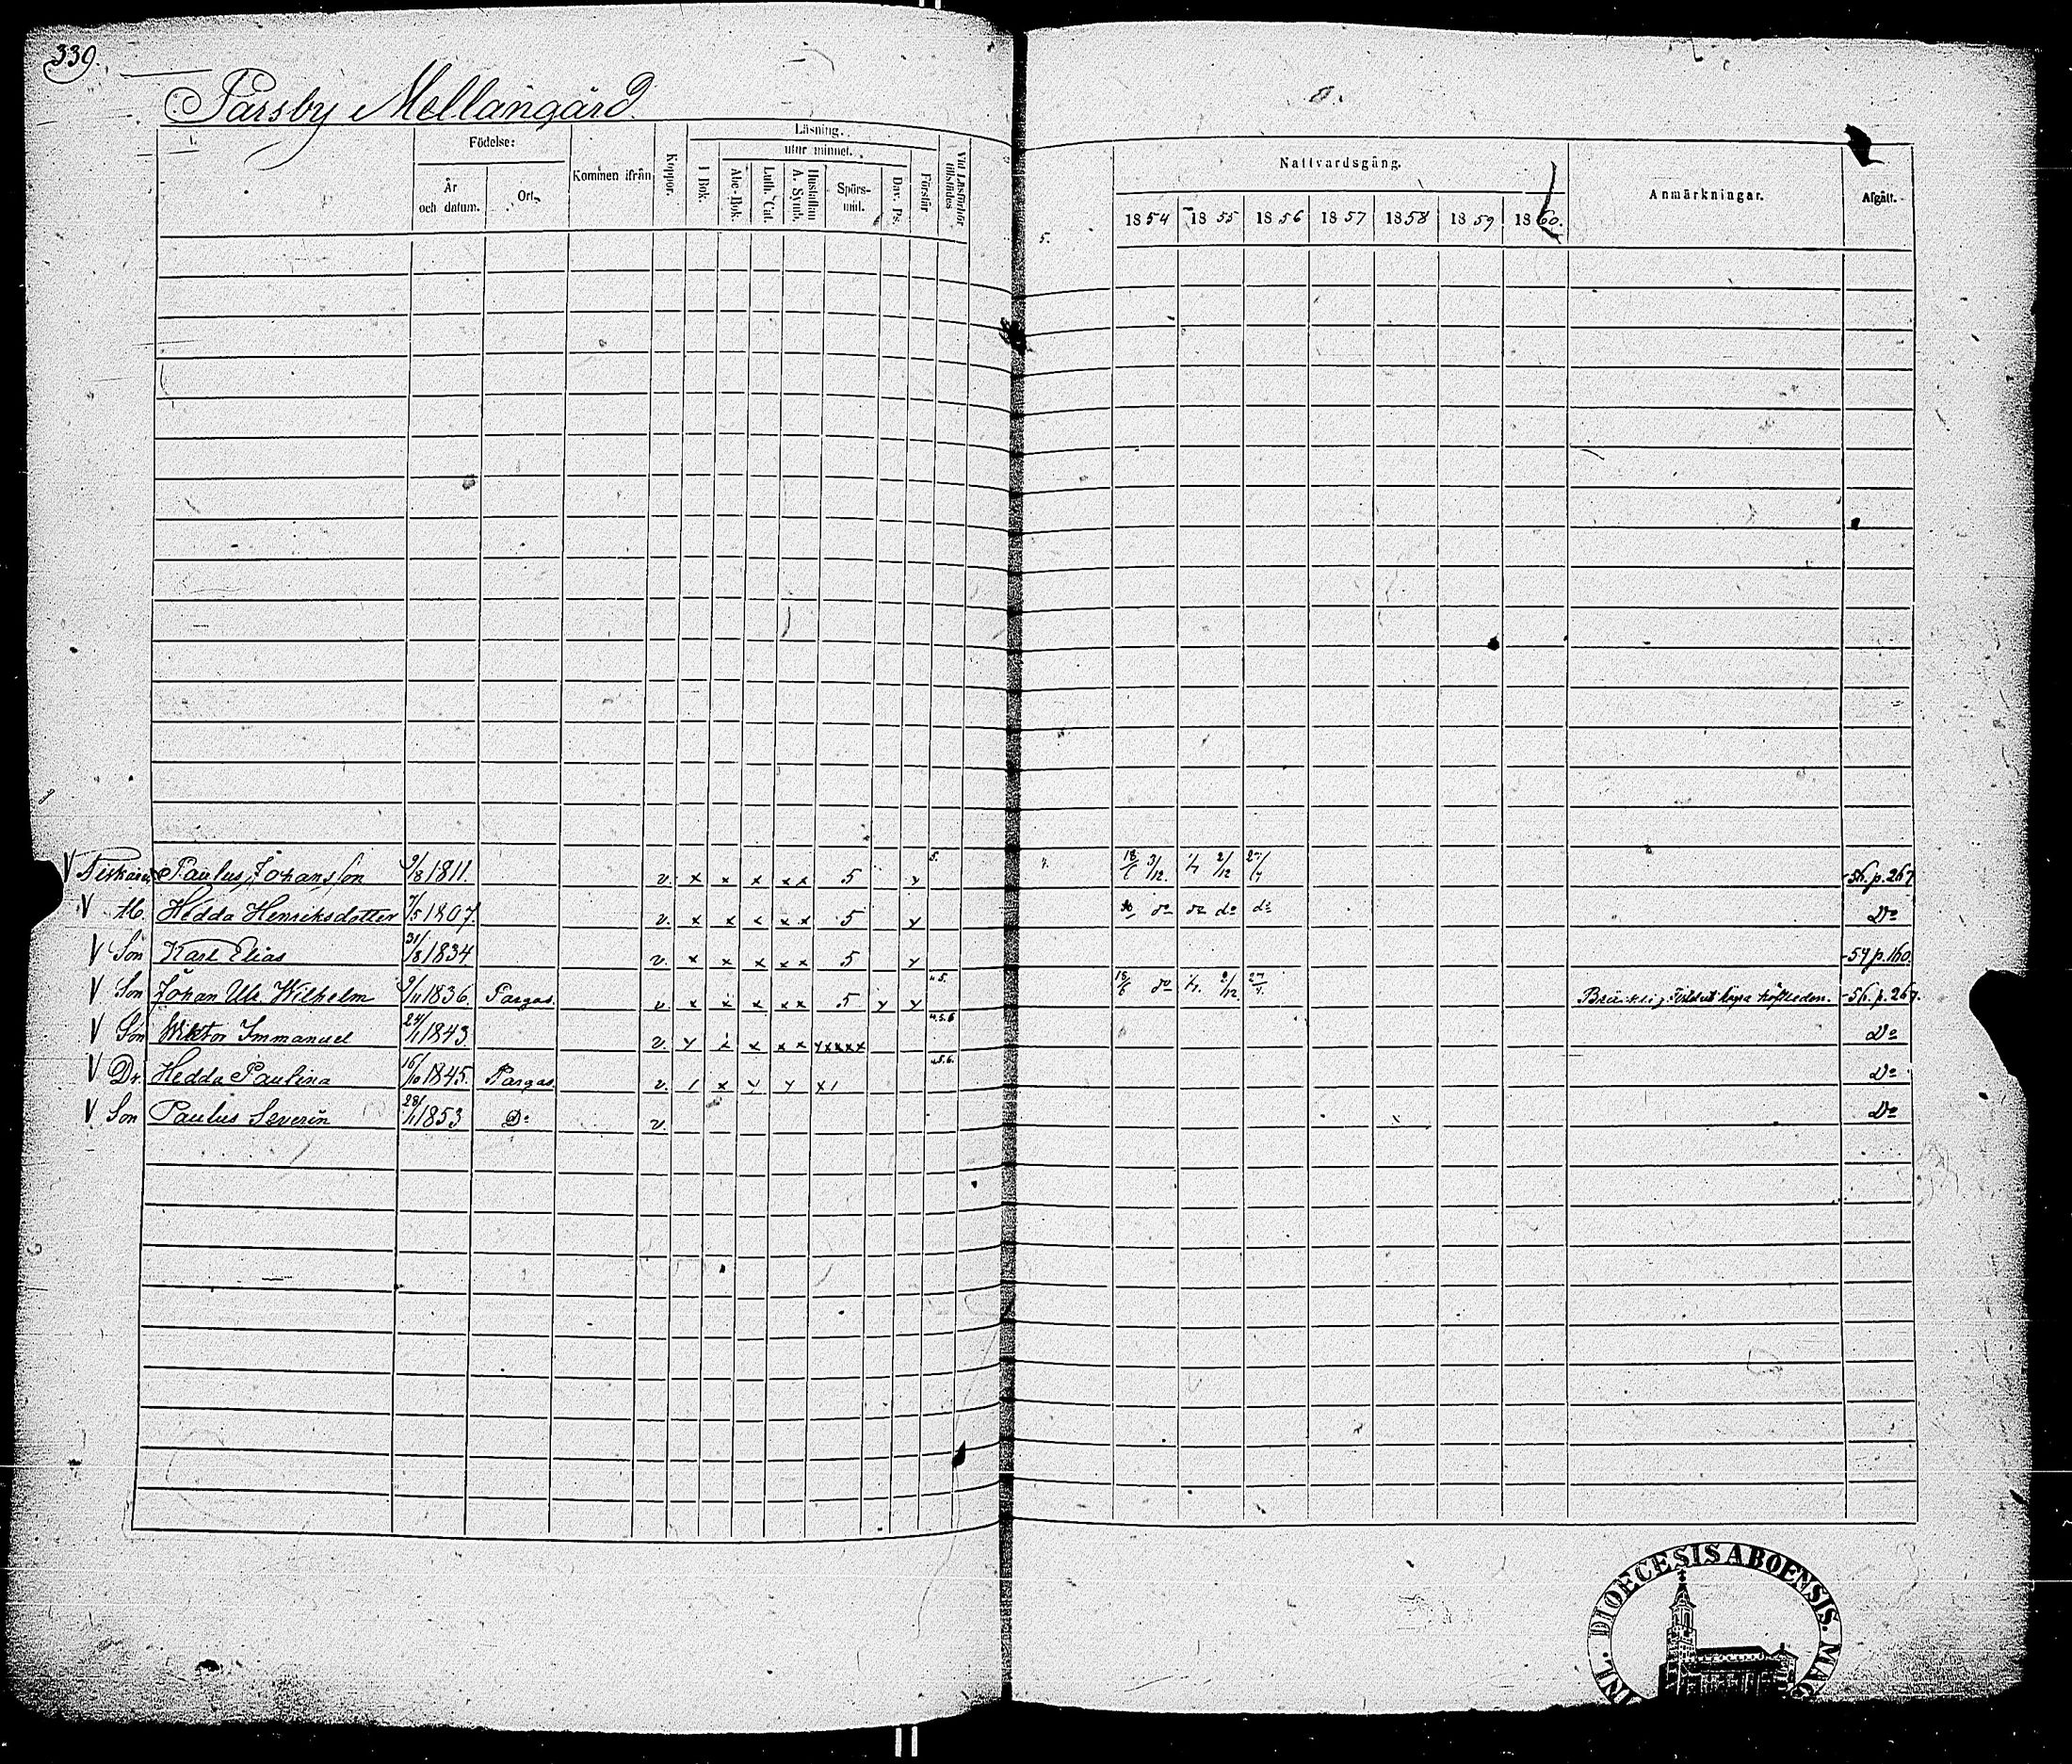 339.
Parsby Mellangård.
1.
Födelse:
År och datum.
Ort.
Kommen ifrån
Koppor.
Läsning.
I Bok.
utur minnet.
Abc-Bok.
Luth. Cat.
Hustaflan A. Symb.
Spörsmål.
Dav. Ps.
Förstår
Vid Läsförhör tillstädes
5.
Nattvardsgång.
1854 1855 1856 1857 1858 1859 1860.
Anmärkningar.
Afgått.
V Paulus Johansson 9/8 1811. v. x x x x x 5 y 5. 3/12. 2/12 -56.p.267
V H. Hedda Henriksdotter 7/5 1807. v. x x x x x 5 y do do do do Do
V Son Karl Elias 31/8 1834 v. x x x x x 5 y -54 p.160.
V Son Johan Ulr. Wilhelm 9/11 1836. Pargas. v x x x x x 5 y y 5. 18/6 do 2/12. 27/4. -56.p.267.
V Son Wiktor Immanuel 24/1 1843. v. y x x x x xxxxx 4.5.6 Do
V Dr. Hedda Paulina 16/10 1845. Pargas v. 1 x y y x1 5.6. Do
V Son Paulus Severin 28/1 1853 Do v. Do
FINL. DIOECESIS ABOENSIS. MAG